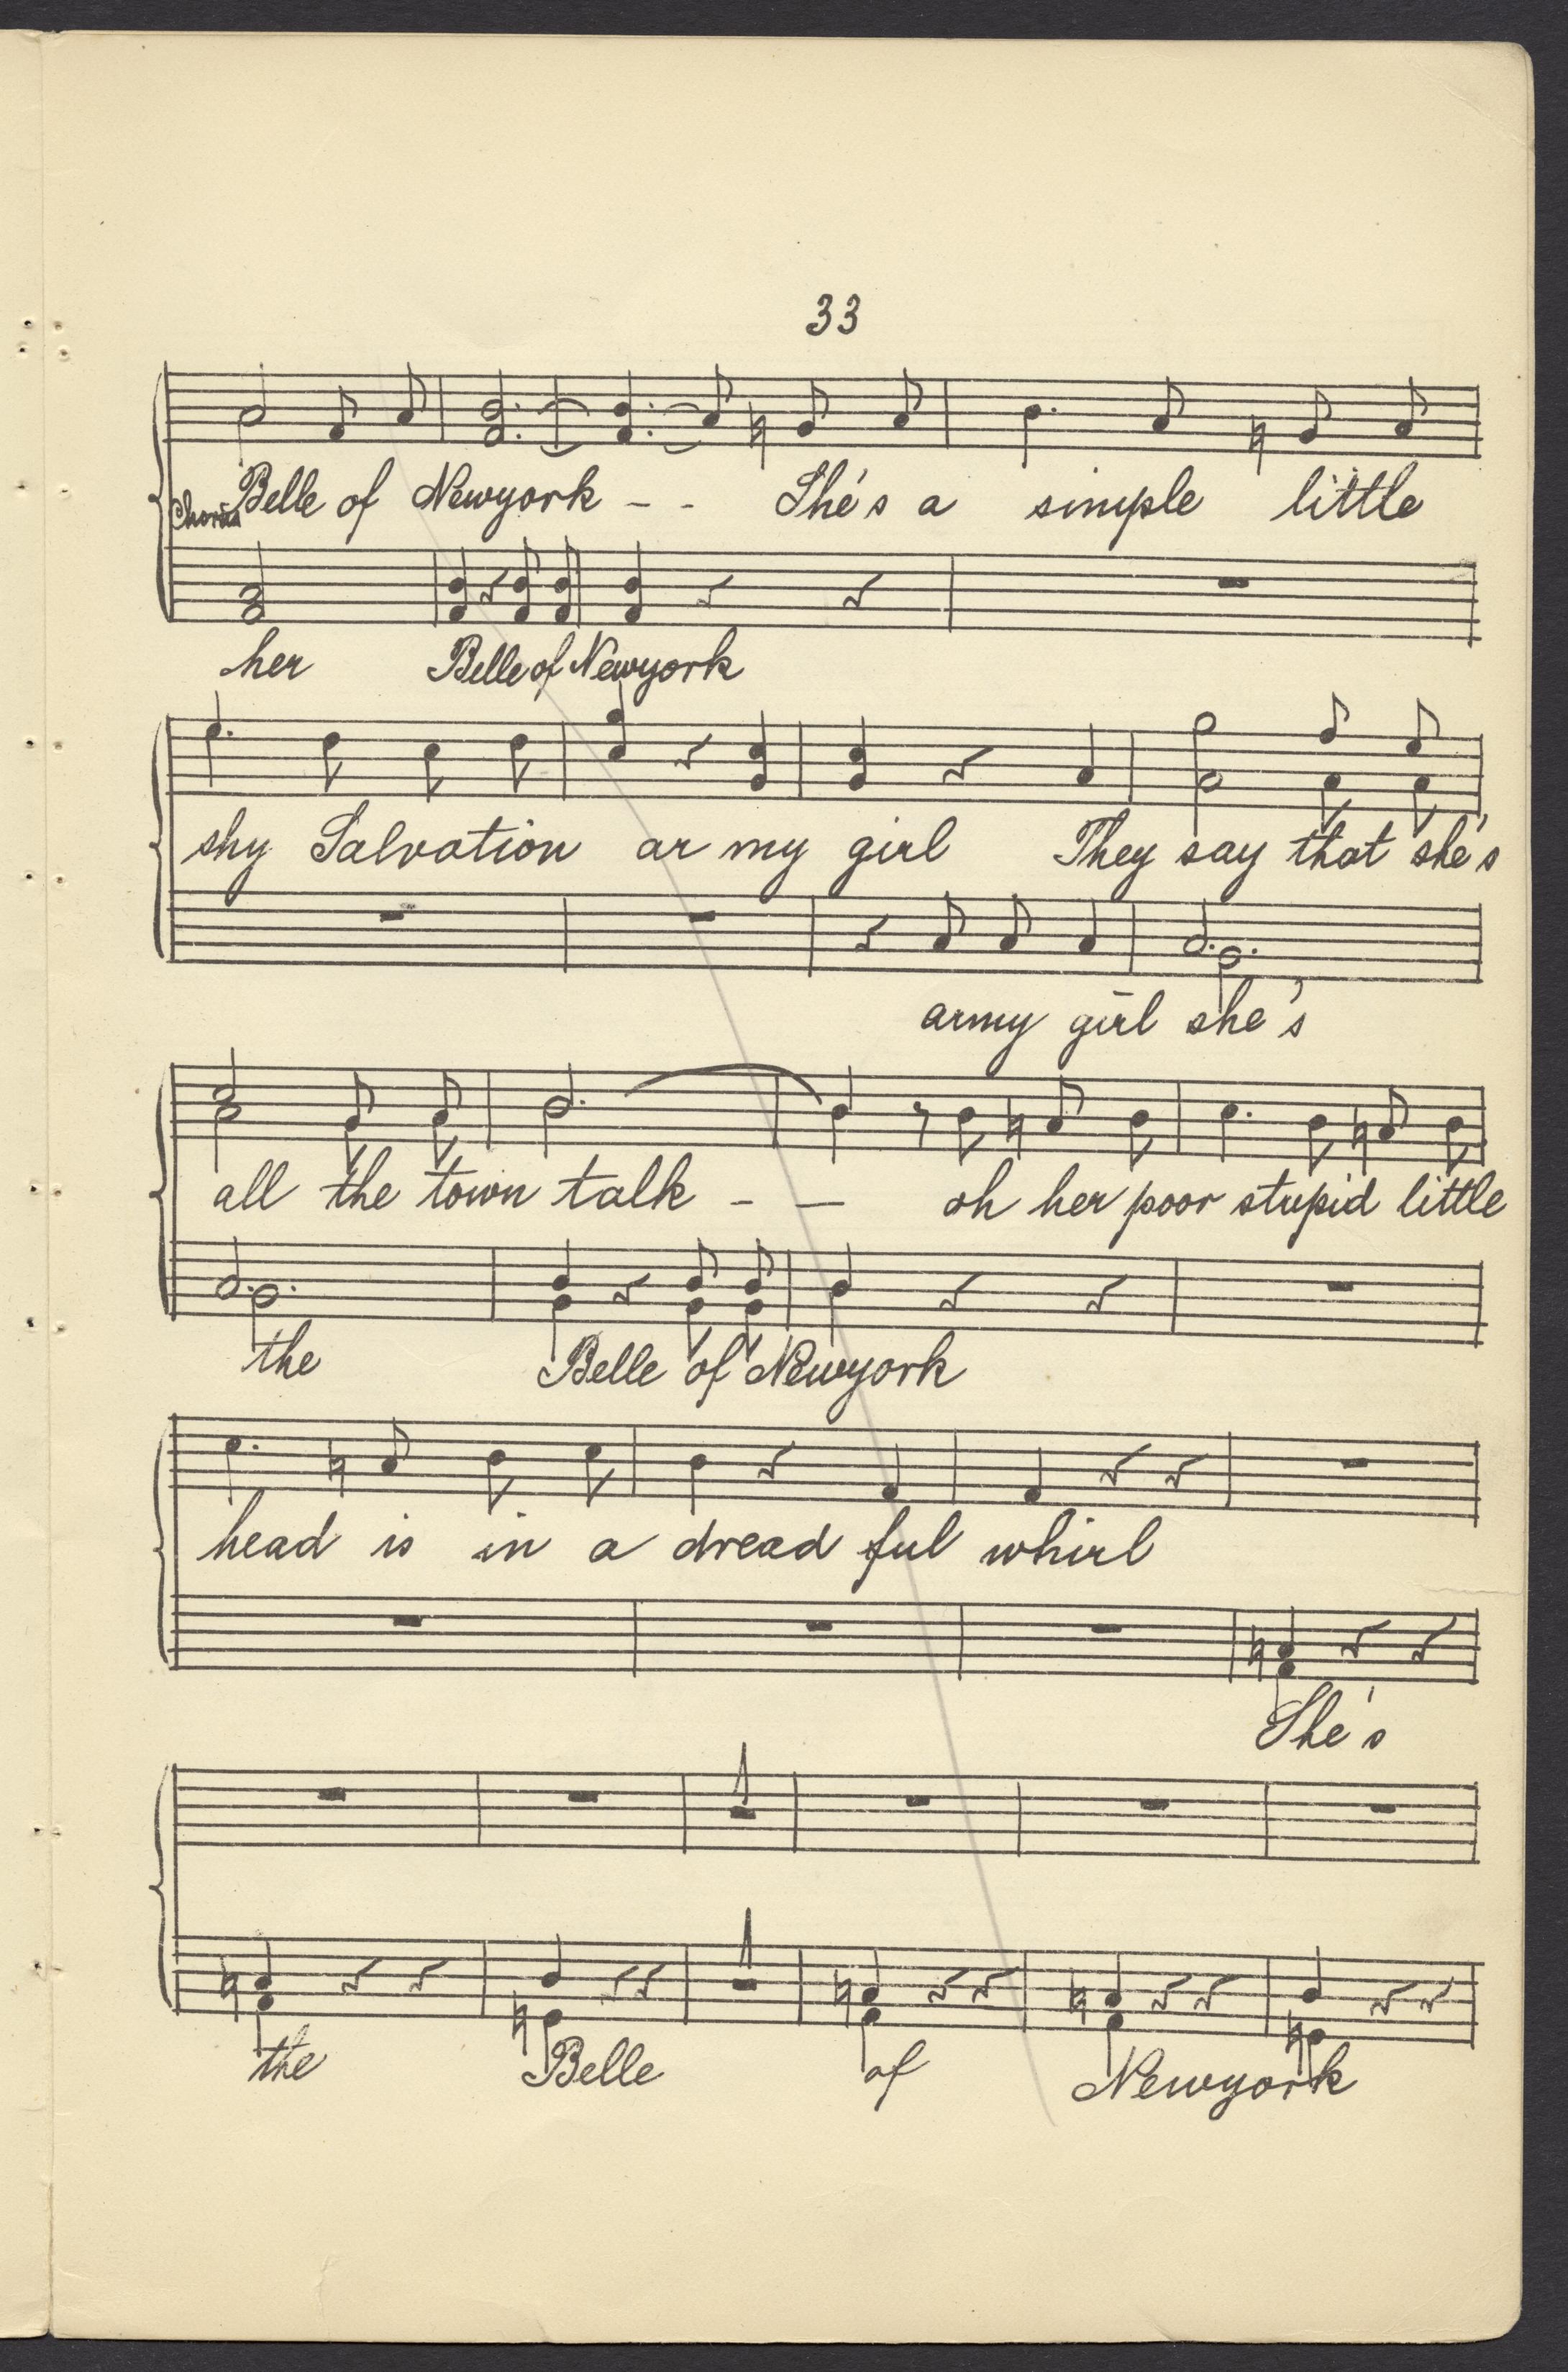 33
Belle of Newyork - - She's a simple little
Chorus
her Belle of Newyork
shy Salvation ar my girl They say that she's
army girl she's
all the town talk - — oh her poor stupid little
the Belle of Newyork
head is in a dread ful whirl
She's
the Belle of Newyork